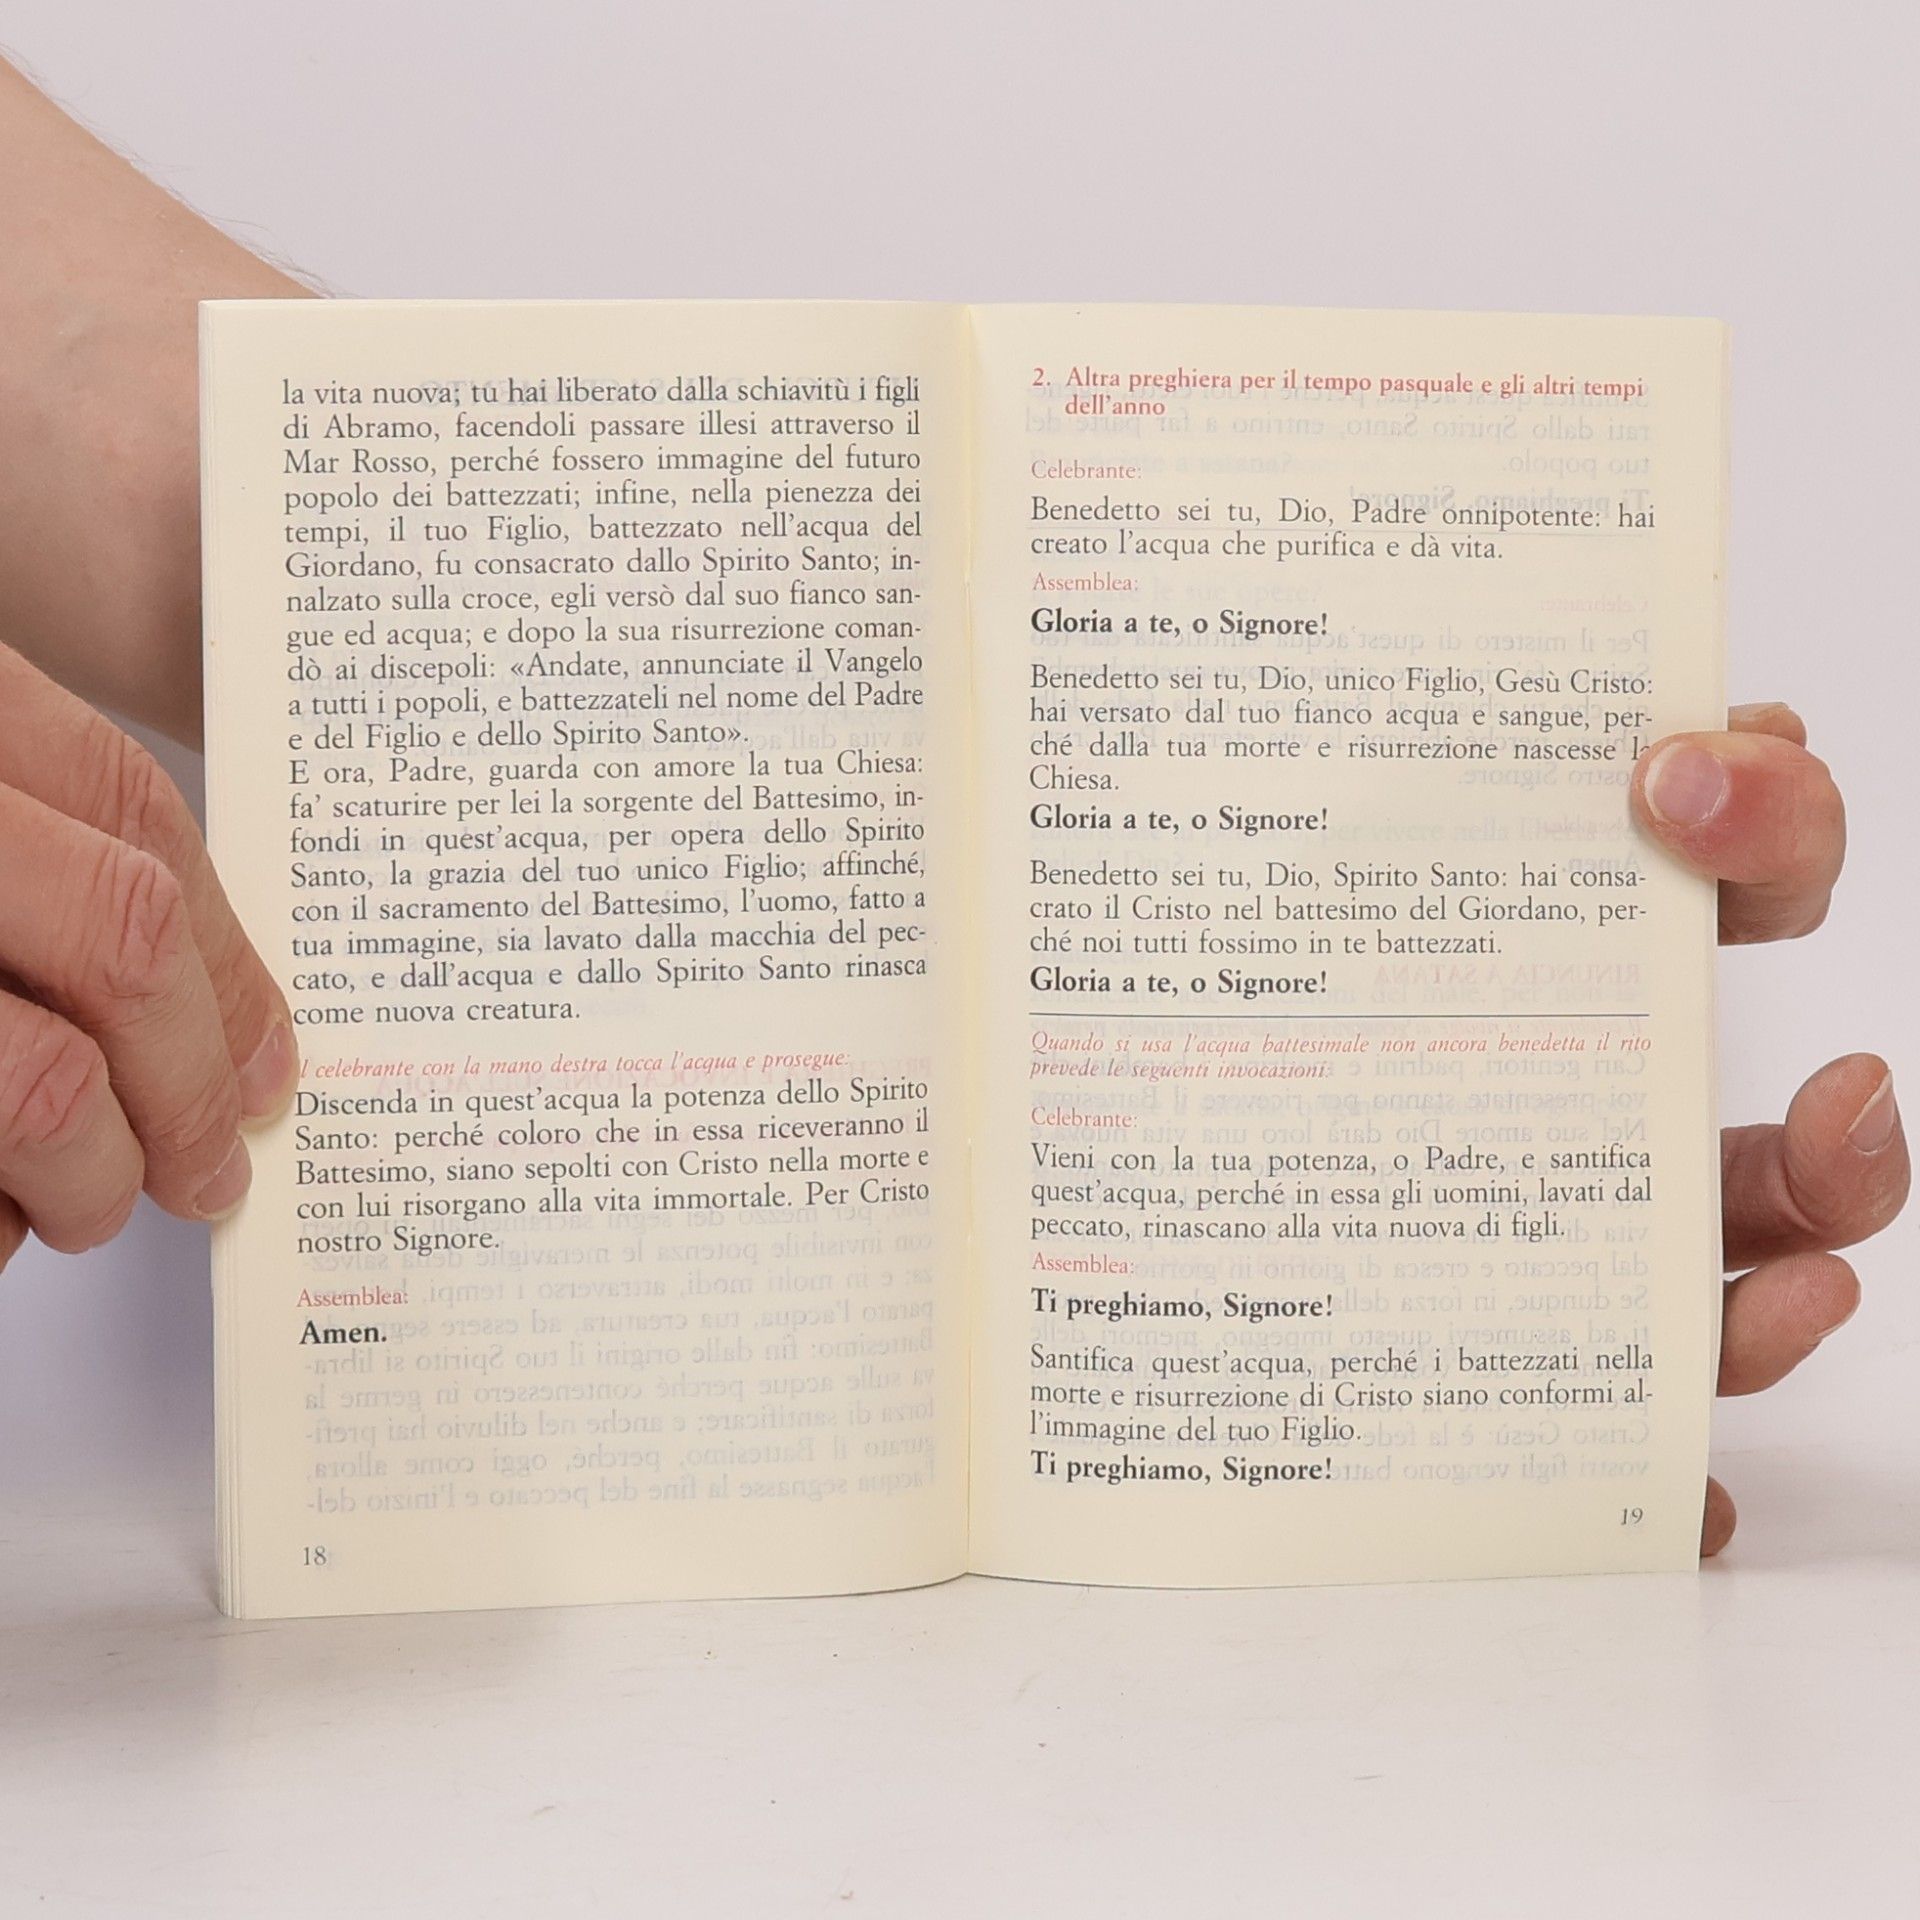 la vita nuova; tu hai liberato dalla schiavitù i figli
di Abramo, facendoli passare illesi attraverso il
Mar Rosso, perché fossero immagine del futuro
popolo dei battezzati; infine, nella pienezza dei
tempi, il tuo Figlio, battezzato nell'acqua del
Giordano, fu consacrato dallo Spirito Santo; in-
nalzato sulla croce, egli versò dal suo fianco san-
gue ed acqua; e dopo la sua risurrezione coman-
dò ai discepoli: «Andate, annunciate il Vangelo
a tutti i popoli, e battezzateli nel nome del Padre
e del Figlio e dello Spirito Santo».
E ora, Padre, guarda con amore la tua Chiesa:
fa' scaturire per lei la sorgente del Battesimo, in-
fondi in quest'acqua, per opera dello Spirito
Santo, la grazia del tuo unico Figlio; affinché,
con il sacramento del Battesimo, l'uomo, fatto a
tua immagine, sia lavato dalla macchia del pec-
cato, e dall'acqua e dallo Spirito Santo rinasca
come nuova creatura.
l celebrante con la mano destra tocca l'acqua e prosegue:
Discenda in quest'acqua la potenza dello Spirito
Santo: perché coloro che in essa riceveranno il
Battesimo, siano sepolti con Cristo nella morte e
con lui risorgano alla vita immortale. Per Cristo
nostro Signore.
Assemblea:
Amen.
18
2. Altra preghiera per il tempo pasquale e gli altri tempi
dell'anno
Celebrante:
Benedetto sei tu, Dio, Padre onnipotente: hai
creato l'acqua che purifica e dà vita.
Assemblea:
Gloria a te, o Signore!
Benedetto sei tu, Dio, unico Figlio, Gesù Cristo:
hai versato dal tuo fianco acqua e sangue, per-
ché dalla tua morte e risurrezione nascesse la
Chiesa.
Gloria a te, o Signore!
Benedetto sei tu, Dio, Spirito Santo: hai consa-
crato il Cristo nel battesimo del Giordano, per-
ché noi tutti fossimo in te battezzati.
Gloria a te, o Signore!
Quando si usa l'acqua battesimale non ancora benedetta il rito
prevede le seguenti invocazioni:
Celebrante:
Vieni con la tua potenza, o Padre, e santifica
quest'acqua, perché in essa gli uomini, lavati dal
peccato, rinascano alla vita nuova di figli.
Assemblea:
Ti preghiamo, Signore!
Santifica quest'acqua, perché i battezzati nella
morte e risurrezione di Cristo siano conformi al-
l'immagine del tuo Figlio.
Ti preghiamo, Signore!
19